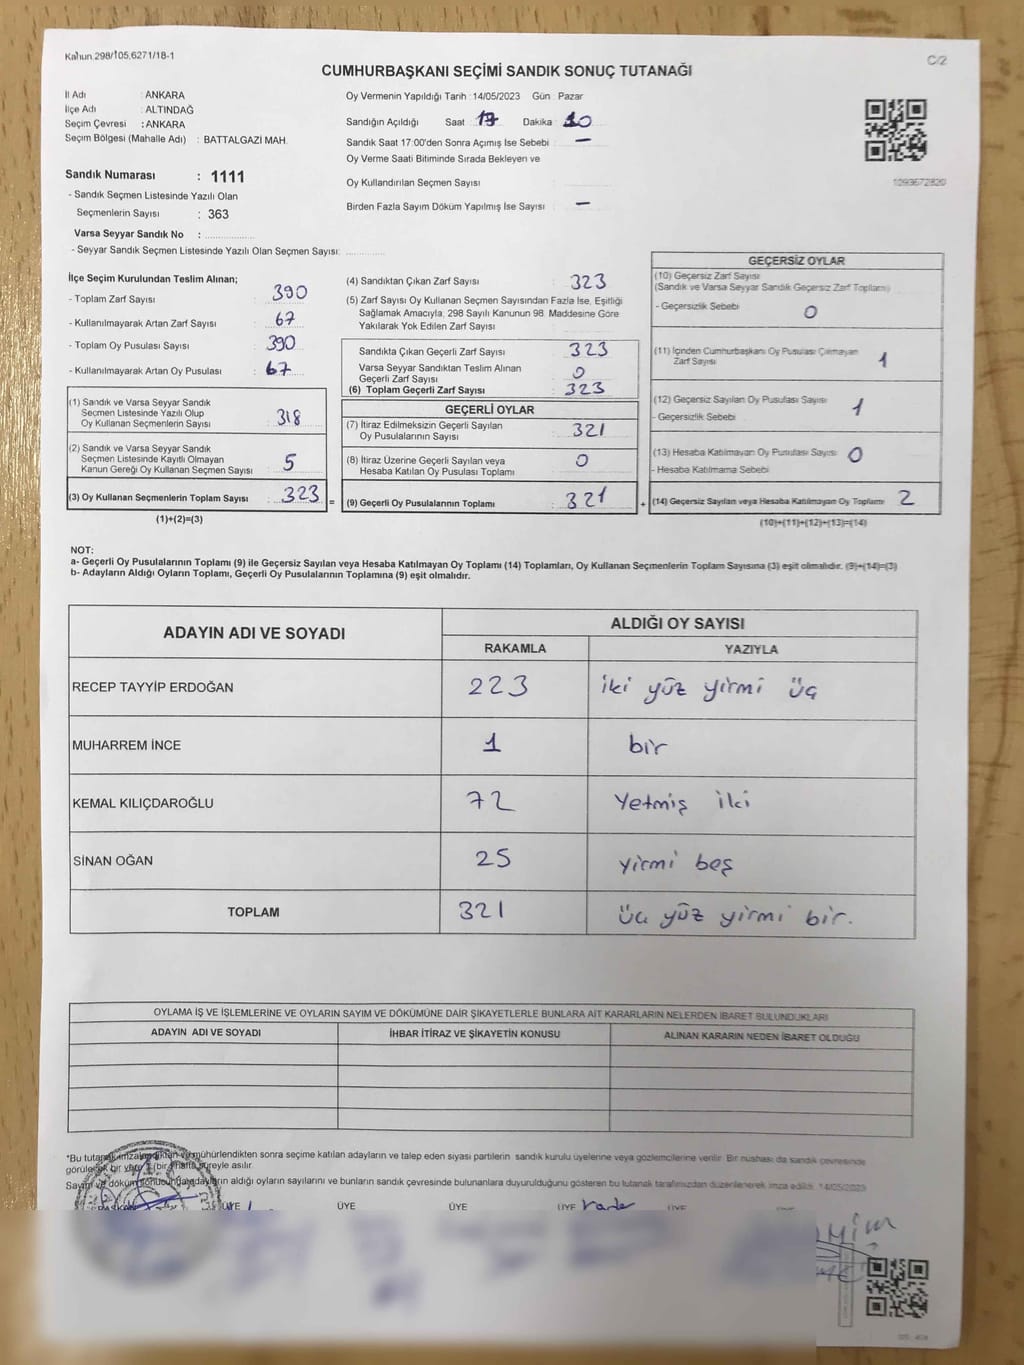 Kanun.298/105,6271/18-1
C/2
CUMHURBAŞKANI SEÇİMİ SANDIK SONUÇ TUTANAĞI
İl Adı : ANKARA
İlçe Adı : ALTINDAĞ
Seçim Çevresi : ANKARA
Seçim Bölgesi (Mahalle Adı) : BATTALGAZİ MAH.
Sandık Numarası : 1111
- Sandık Seçmen Listesinde Yazılı Olan
Seçmenlerin Sayısı : 363
Varsa Seyyar Sandık No : ..............
- Seyyar Sandık Seçmen Listesinde Yazılı Olan Seçmen Sayısı: ............
Oy Vermenin Yapıldığı Tarih : 14/05/2023 Gün : Pazar
Sandığın Açıldığı Saat : 17 Dakika : 10
Sandık Saat 17:00'den Sonra Açımış İse Sebebi : —
Oy Verme Saati Bitiminde Sırada Bekleyen ve
Oy Kullandırılan Seçmen Sayısı :
Birden Fazla Sayım Döküm Yapılmış İse Sayısı : —
1093672820
İlçe Seçim Kurulundan Teslim Alınan;
- Toplam Zarf Sayısı : 390
- Kullanılmayarak Artan Zarf Sayısı : 67
- Toplam Oy Pusulası Sayısı : 390
- Kullanılmayarak Artan Oy Pusulası : 67
(1) Sandık ve Varsa Seyyar Sandık
Seçmen Listesinde Yazılı Olup
Oy Kullanan Seçmenlerin Sayısı : 318
(2) Sandık ve Varsa Seyyar Sandık
Seçmen Listesinde Kayıtlı Olmayan
Kanun Gereği Oy Kullanan Seçmen Sayısı : 5
(3) Oy Kullanan Seçmenlerin Toplam Sayısı : 323 =
(1)+(2)=(3)
(4) Sandıktan Çıkan Zarf Sayısı : 323
(5) Zarf Sayısı Oy Kullanan Seçmen Sayısından Fazla İse, Eşitliği
Sağlamak Amacıyla; 298 Sayılı Kanunun 98. Maddesine Göre
Yakılarak Yok Edilen Zarf Sayısı :
Sandıkta Çıkan Geçerli Zarf Sayısı : 323
Varsa Seyyar Sandıktan Teslim Alınan
Geçerli Zarf Sayısı : 0
(6) Toplam Geçerli Zarf Sayısı : 323
GEÇERLİ OYLAR
(7) İtiraz Edilmeksizin Geçerli Sayılan
Oy Pusulalarının Sayısı : 321
(8) İtiraz Üzerine Geçerli Sayılan veya
Hesaba Katılan Oy Pusulası Toplamı : 0
(9) Geçerli Oy Pusulalarının Toplamı : 321 +
GEÇERSİZ OYLAR
(10) Geçersiz Zarf Sayısı
(Sandık ve Varsa Seyyar Sandık Geçersiz Zarf Toplamı)
- Geçersizlik Sebebi : 0
(11) İçinden Cumhurbaşkanı Oy Pusulası Çıkmayan
Zarf Sayısı : 1
(12) Geçersiz Sayılan Oy Pusulası Sayısı : 1
- Geçersizlik Sebebi :
(13) Hesaba Katılmayan Oy Pusulası Sayısı : 0
- Hesaba Katılmama Sebebi :
(14) Geçersiz Sayılan veya Hesaba Katılmayan Oy Toplamı : 2
(10)+(11)+(12)+(13)=(14)
NOT:
a- Geçerli Oy Pusulalarının Toplamı (9) ile Geçersiz Sayılan veya Hesaba Katılmayan Oy Toplamı (14) Toplamları, Oy Kullanan Seçmenlerin Toplam Sayısına (3) eşit olmalıdır. (9)+(14)=(3)
b- Adayların Aldığı Oyların Toplamı, Geçerli Oy Pusulalarının Toplamına (9) eşit olmalıdır.
ADAYIN ADI VE SOYADI
ALDIĞI OY SAYISI
RAKAMLA YAZIYLA
RECEP TAYYİP ERDOĞAN 223 iki yüz yirmi üç
MUHARREM İNCE 1 bir
KEMAL KILIÇDAROĞLU 72 Yetmiş iki
SİNAN OĞAN 25 yirmi beş
TOPLAM 321 üç yüz yirmi bir.
OYLAMA İŞ VE İŞLEMLERİNE VE OYLARIN SAYIM VE DÖKÜMÜNE DAİR ŞİKAYETLERLE BUNLARA AİT KARARLARIN NELERDEN İBARET BULUNDUKLARI
ADAYIN ADI VE SOYADI İHBAR İTİRAZ VE ŞİKAYETİN KONUSU ALINAN KARARIN NEDEN İBARET OLDUĞU
*Bu tutanak imzalandıktan ve mühürlendikten sonra seçime katılan adayların ve talep eden siyasi partilerin sandık kurulu üyelerine veya gözlemcilerine verilir. Bir nüshası da sandık çevresinde
görülecek bir yere 1 (bir) hafta süreyle asılır.
Sayım ve döküm sonucunda adayların aldığı oyların sayılarını ve bunların sandık çevresinde bulunanlara duyurulduğunu gösteren bu tutanak tarafımızdan düzenlenerek imza edildi. 14/05/2023
BAŞKAN ÜYE ÜYE ÜYE ÜYE ÜYE